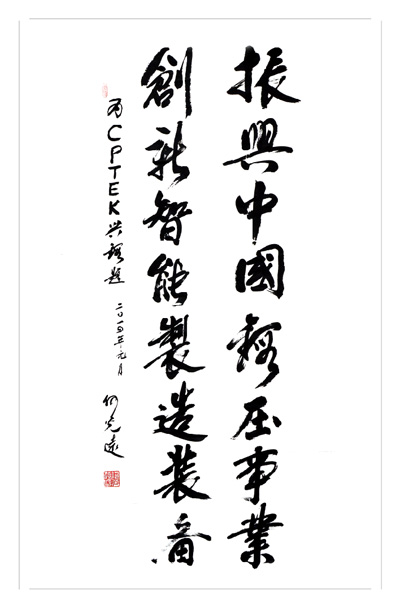 振興中國鍛压事業
創新智能製造装备
为CPTEK兴鍛题
二〇一五年元月
何光遠